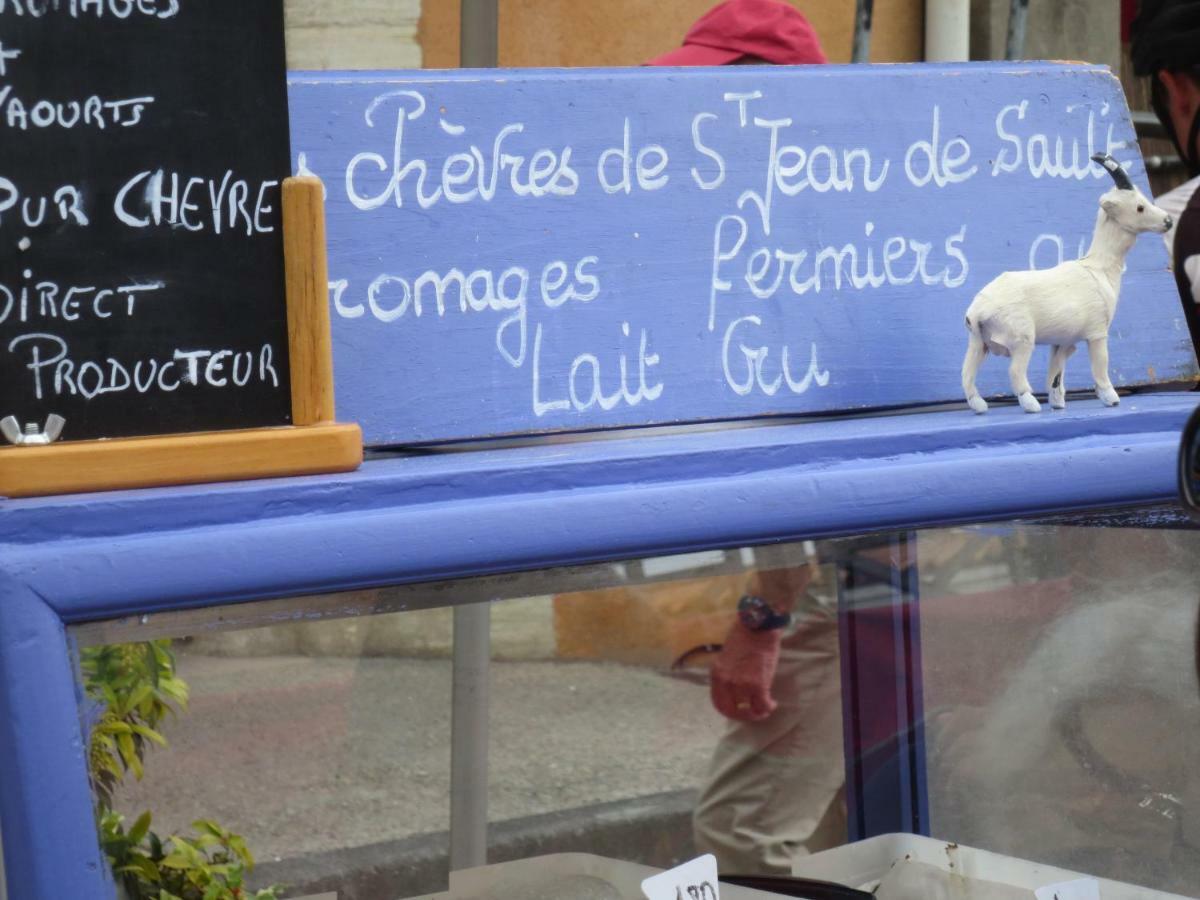 FROMAGES
+
YAOURTS
PUR CHEVRE
DIRECT
PRODUCTEUR
chèvres de St Jean de Sault
Fromages Fermiers au
Lait Cru
180